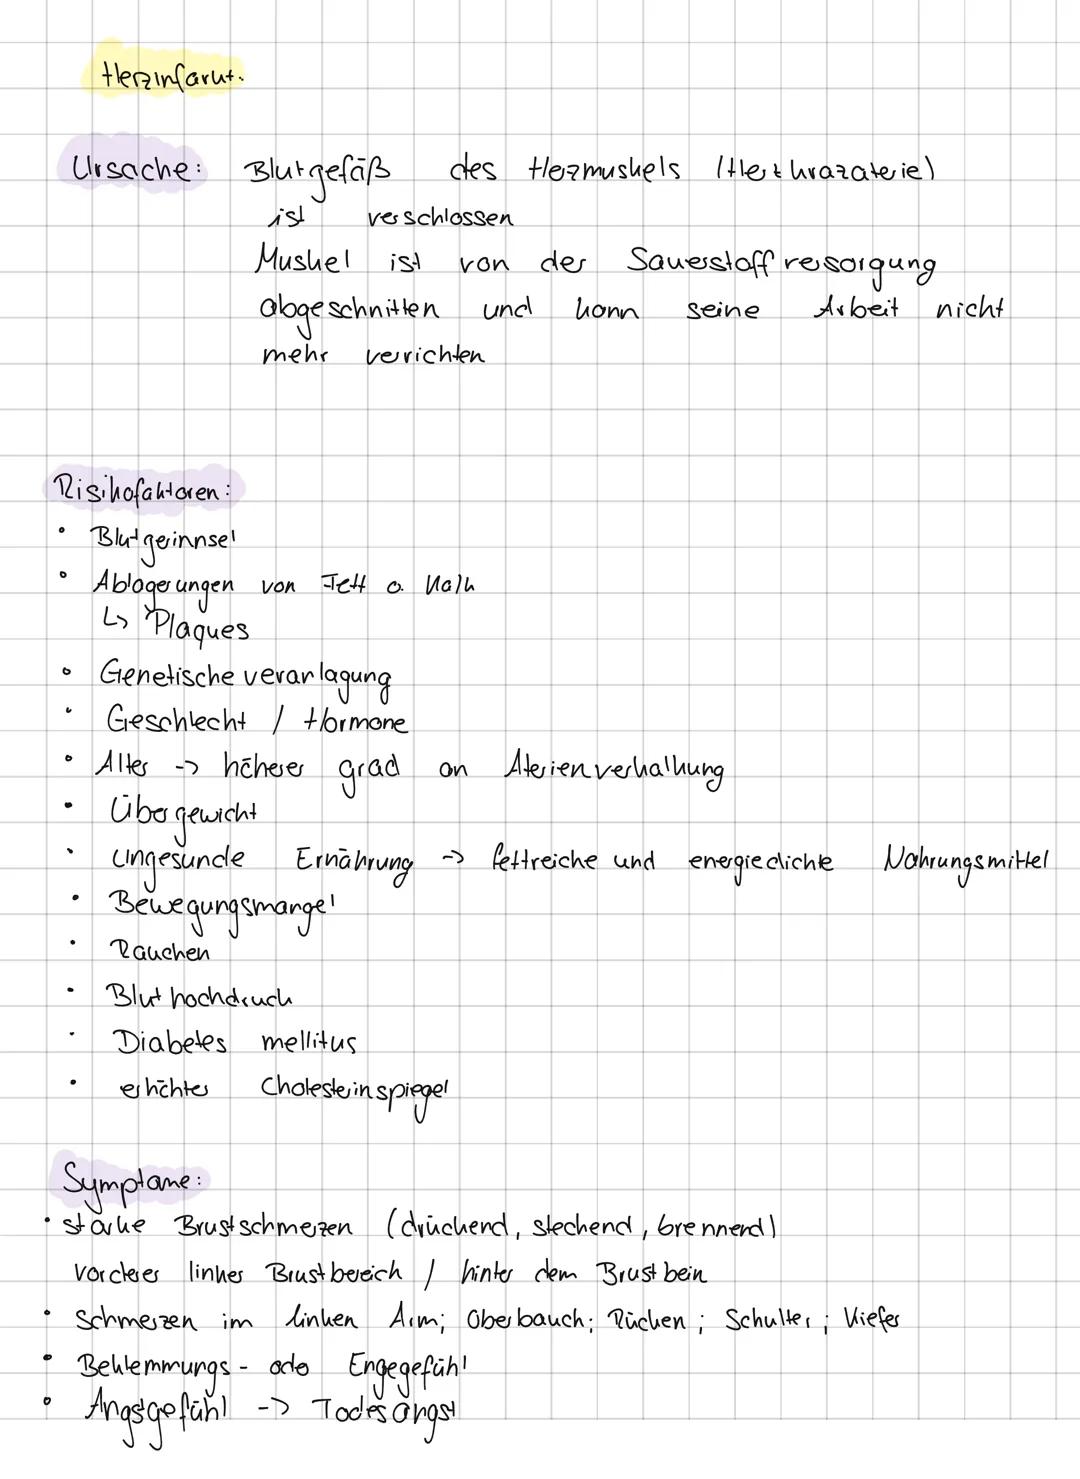 Herzinfarkt.
Ursache: Blutgefäß des Herzmuskels (Herzkrazaterie)
ist verschlossen
Muskel ist von der Sauerstoffversorgung
abgeschnitten und kann seine Arbeit nicht
mehr verrichten
Risikofaktoren:
• Blutgerinnsel
• Ablagerungen von Fett o. Kalk
↳ Plaques
• Genetische veranlagung
• Geschlecht / Hormone
• Alter -> höherer grad an Aterienverkalkung
• Übergewicht
• Ungesunde Ernährung -> fettreiche und energiedichte Nahrungsmittel
• Bewegungsmangel
• Rauchen
• Bluthochdruck
• Diabetes mellitus
• erhöhter Cholesteinspiegel
Symptome:
• starke Brustschmerzen (drückend, stechend, brennend)
vorderer linker Brustbereich / hinter dem Brustbein
• Schmerzen im linken Arm; Oberbauch; Rücken; Schulter; Kiefer
• Beklemmungs- oder Engegefühl
• Angstgefühl -> Todesangst